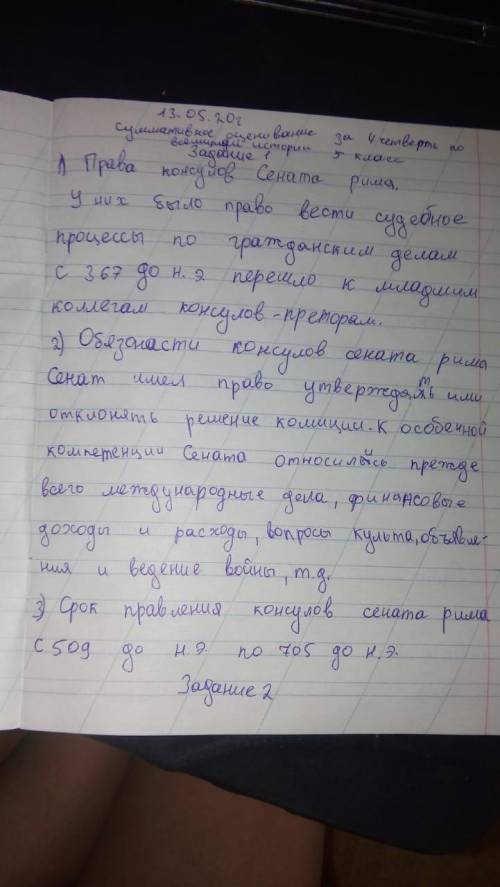 13.05.20г
Суммативное оценивание за 4 четверть по
всемирной истории 5 класс
Задание 1
1) Права консулов Сената рима.
У них было право вести судебное
процессы по гражданским делам
с 367 до н.э перешло к младшим
коллегам консулов-преторам.
2) Обязоности консулов сената рима
Сенат имел право утверждать или
отклонять решение комиции. К особенной
компетенции Сената относились прежде
всего международные дела, финансовые
доходы и расходы, вопросы культа, объявле-
ния и ведение войны, т.д.
3) Срок правления консулов сената рима
с 509 до н.э. по 705 до н.э.
Задание 2